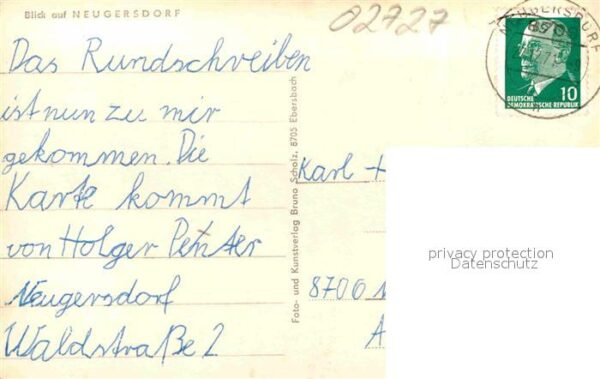 Blick auf NEUGERSDORF
02727
Das Rundschreiben
ist nun zu mir
gekommen. Die
Karte kommt
von Holger Penter
Neugersdorf
Waldstraße 2
Foto- und Kunstverlag Bruno Scholz, 8705 Ebersbach
NEUGERSDORF
10
DEUTSCHE
DEMOKRATISCHE REPUBLIK
Karl
8706
privacy protection
Datenschutz